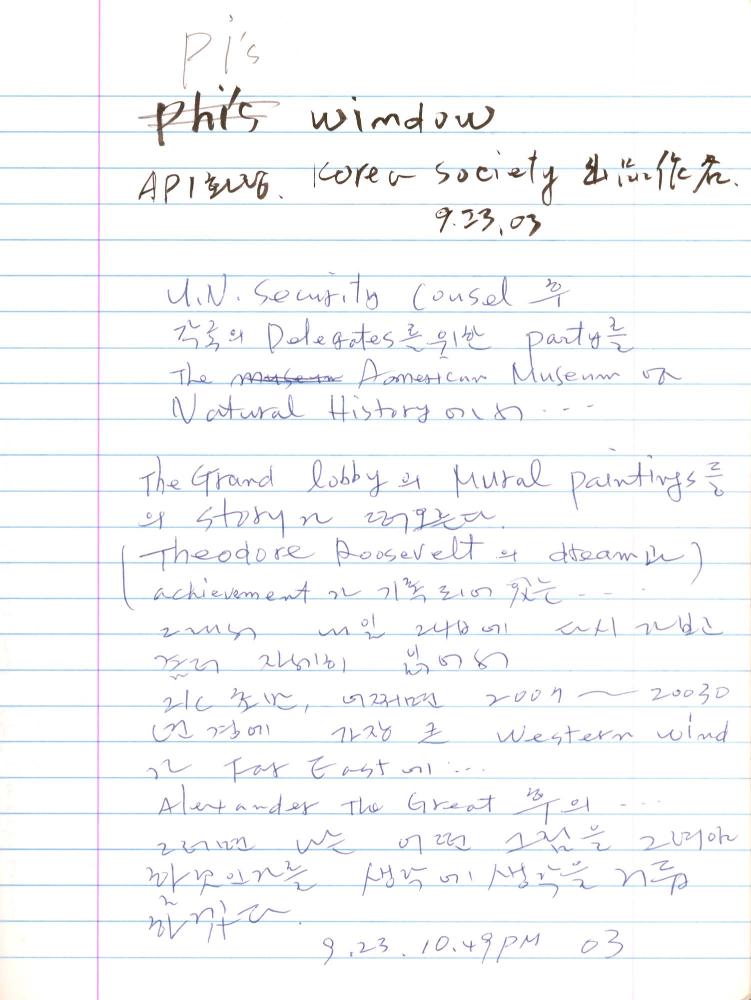 Pi's
phi's window
API Korea Society 出品作名.
9.23,03
U.N. Security Counsel 후
각국의 Delegates를 위한 party를
The museum American Museum of
Natural History에서 ...
The Grand lobby의 Mural paintings를
의 story가 떠오른다.
(Theodore Roosevelt의 dream과)
achievement가 기록되어 있는 ...
그래서 내일 24日에 다시 가보고
자세히
21C 초반, 어쩌면 2007 ~ 20030
년경에 가장 큰 Western wind
가 Far East에 ...
Alexander The Great 후의 ...
그러면 나는 어떤 그림을 그려야
할 것인가를 생각에 생각을 거듭
할 것이다.
9.23. 10.49PM 03